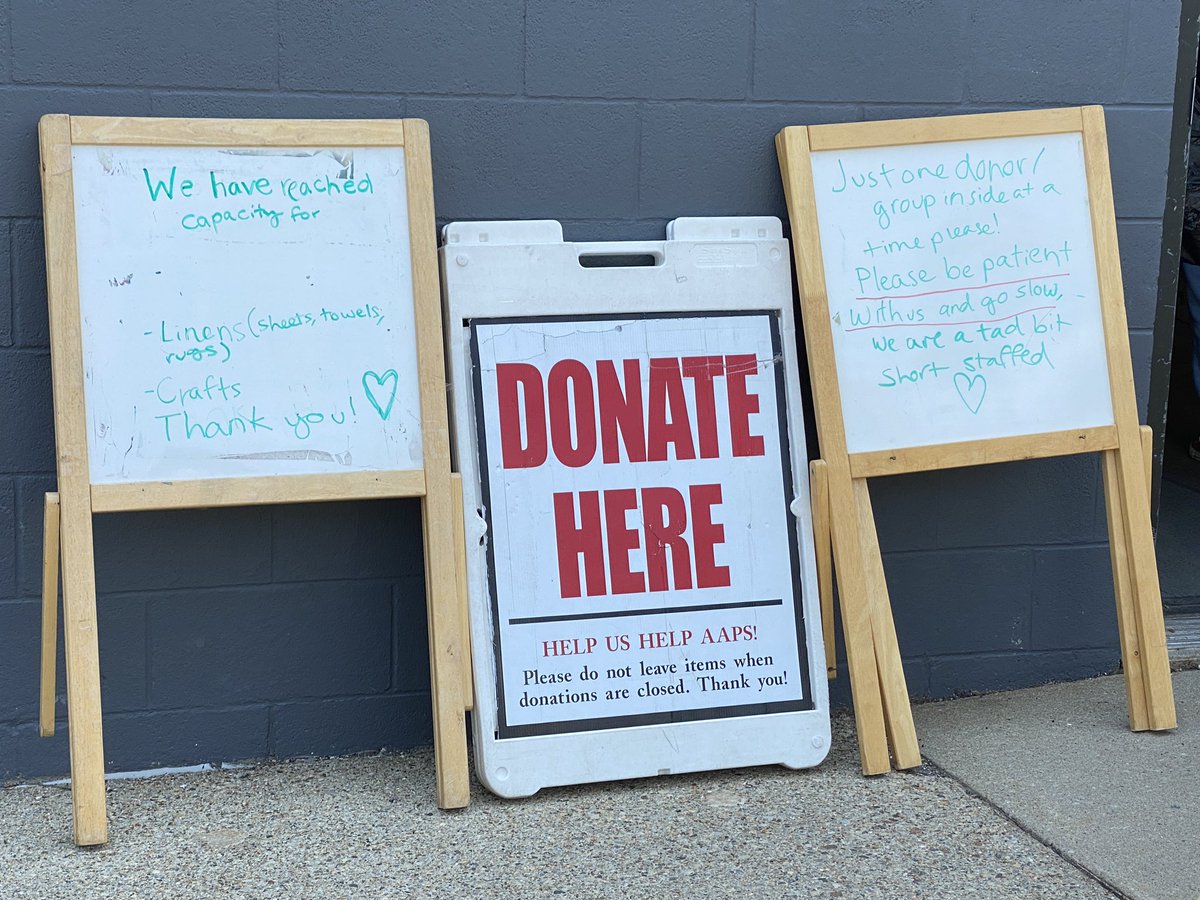 We have reached
capacity for
- Linens (sheets, towels,
rugs)
- Crafts
Thank you!
DONATE
HERE
HELP US HELP AAPS!
Please do not leave items when
donations are closed. Thank you!
Just one donor/
group inside at a
time please!
Please be patient
with us and go slow,
we are a tad bit
short staffed